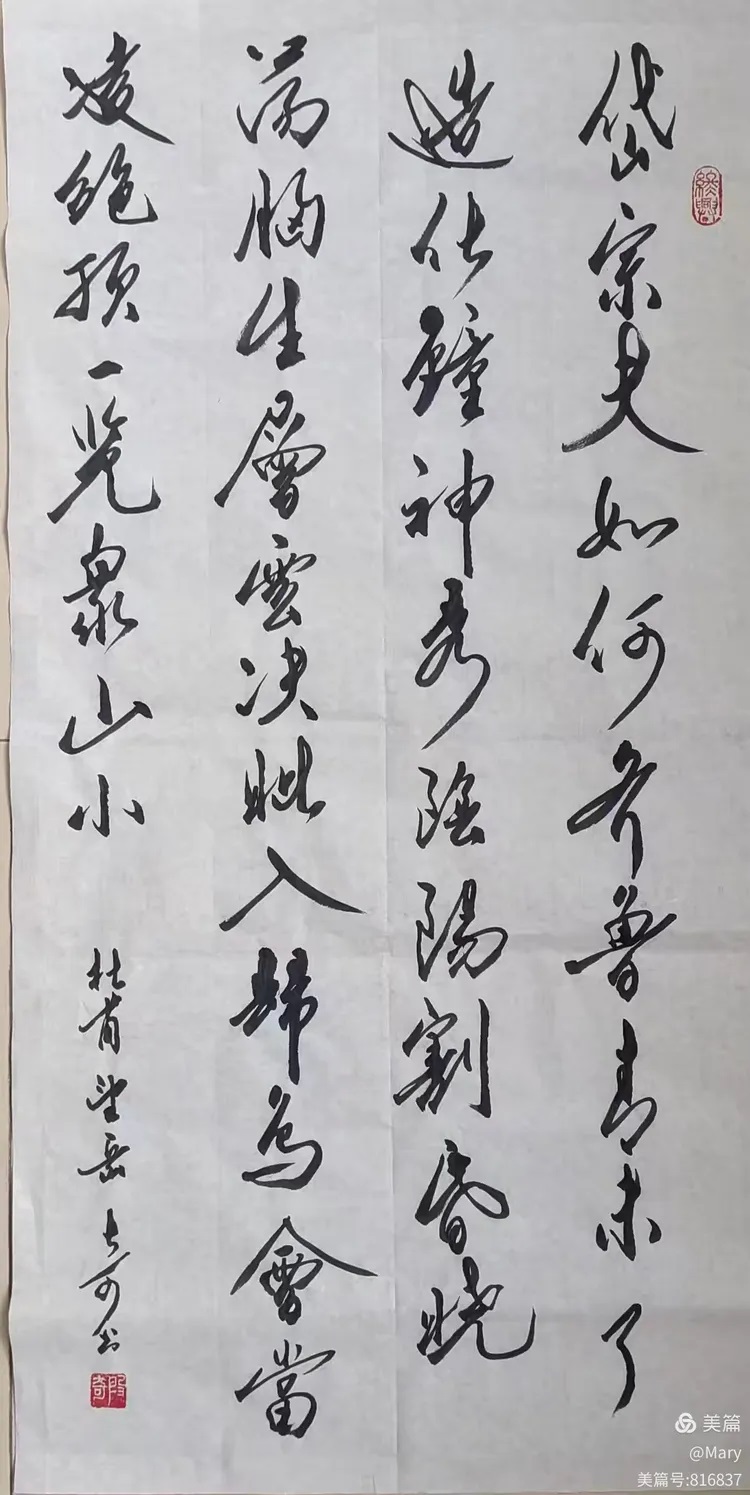 岱宗夫如何齐鲁青未了
造化鐘神秀陰陽割昏晓
荡胸生層雲决眦入歸鸟會當
凌绝顶一览衆山小
杜甫望岳 书
美篇
@Mary
美篇号:816837